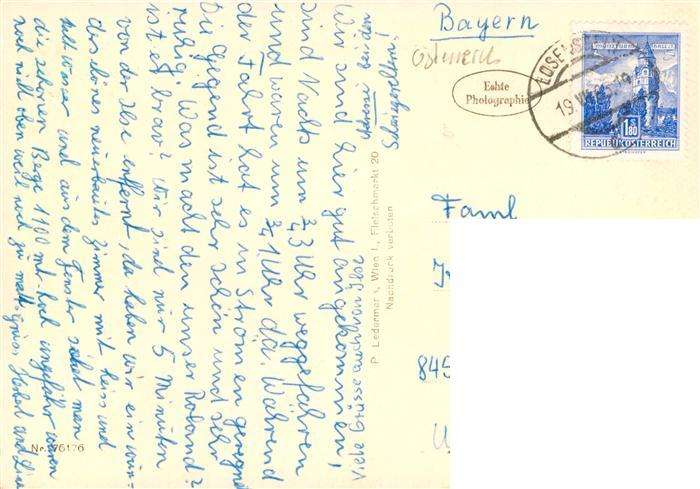 Bayern
Österreich
Echte
Photographie
LOSENSTEIN
19. VII. 65-19
S
1.80
REPUBLIK ÖSTERREICH
Faml
845
Meine beiden
Wir sind hier gut angekommen,
sind Nachts um ¾3 Uhr weggefahren
und waren um ¾1 Uhr da. Während
der Fahrt hat es in Strömen geregnet
Die Gegend ist sehr schön und sehr
ruhig. Was macht den unser Roland?
ist er brav? Wir sind nur 5 Minuten
von der Ilse enfernt, da haben wir ein wun-
derschönes neuerbautes Zimmer mit heiss und
kalt Wasser und aus dem Fenster sieht man
die schönen Berge 1100 mt. hoch ungefähr waren
noch nicht oben weil noch zu matt. Gruss
Viele Grüsse auch von Ilse
P. Ledermann, Wien I., Fleischmarkt 20
Nachdruck verboten
Nr. 76176